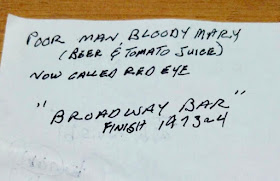 POOR MAN BLOODY MARY
(BEER & TOMATO JUICE)
NOW CALLED RED EYE
"BROADWAY BAR"
FINISH 1973-4